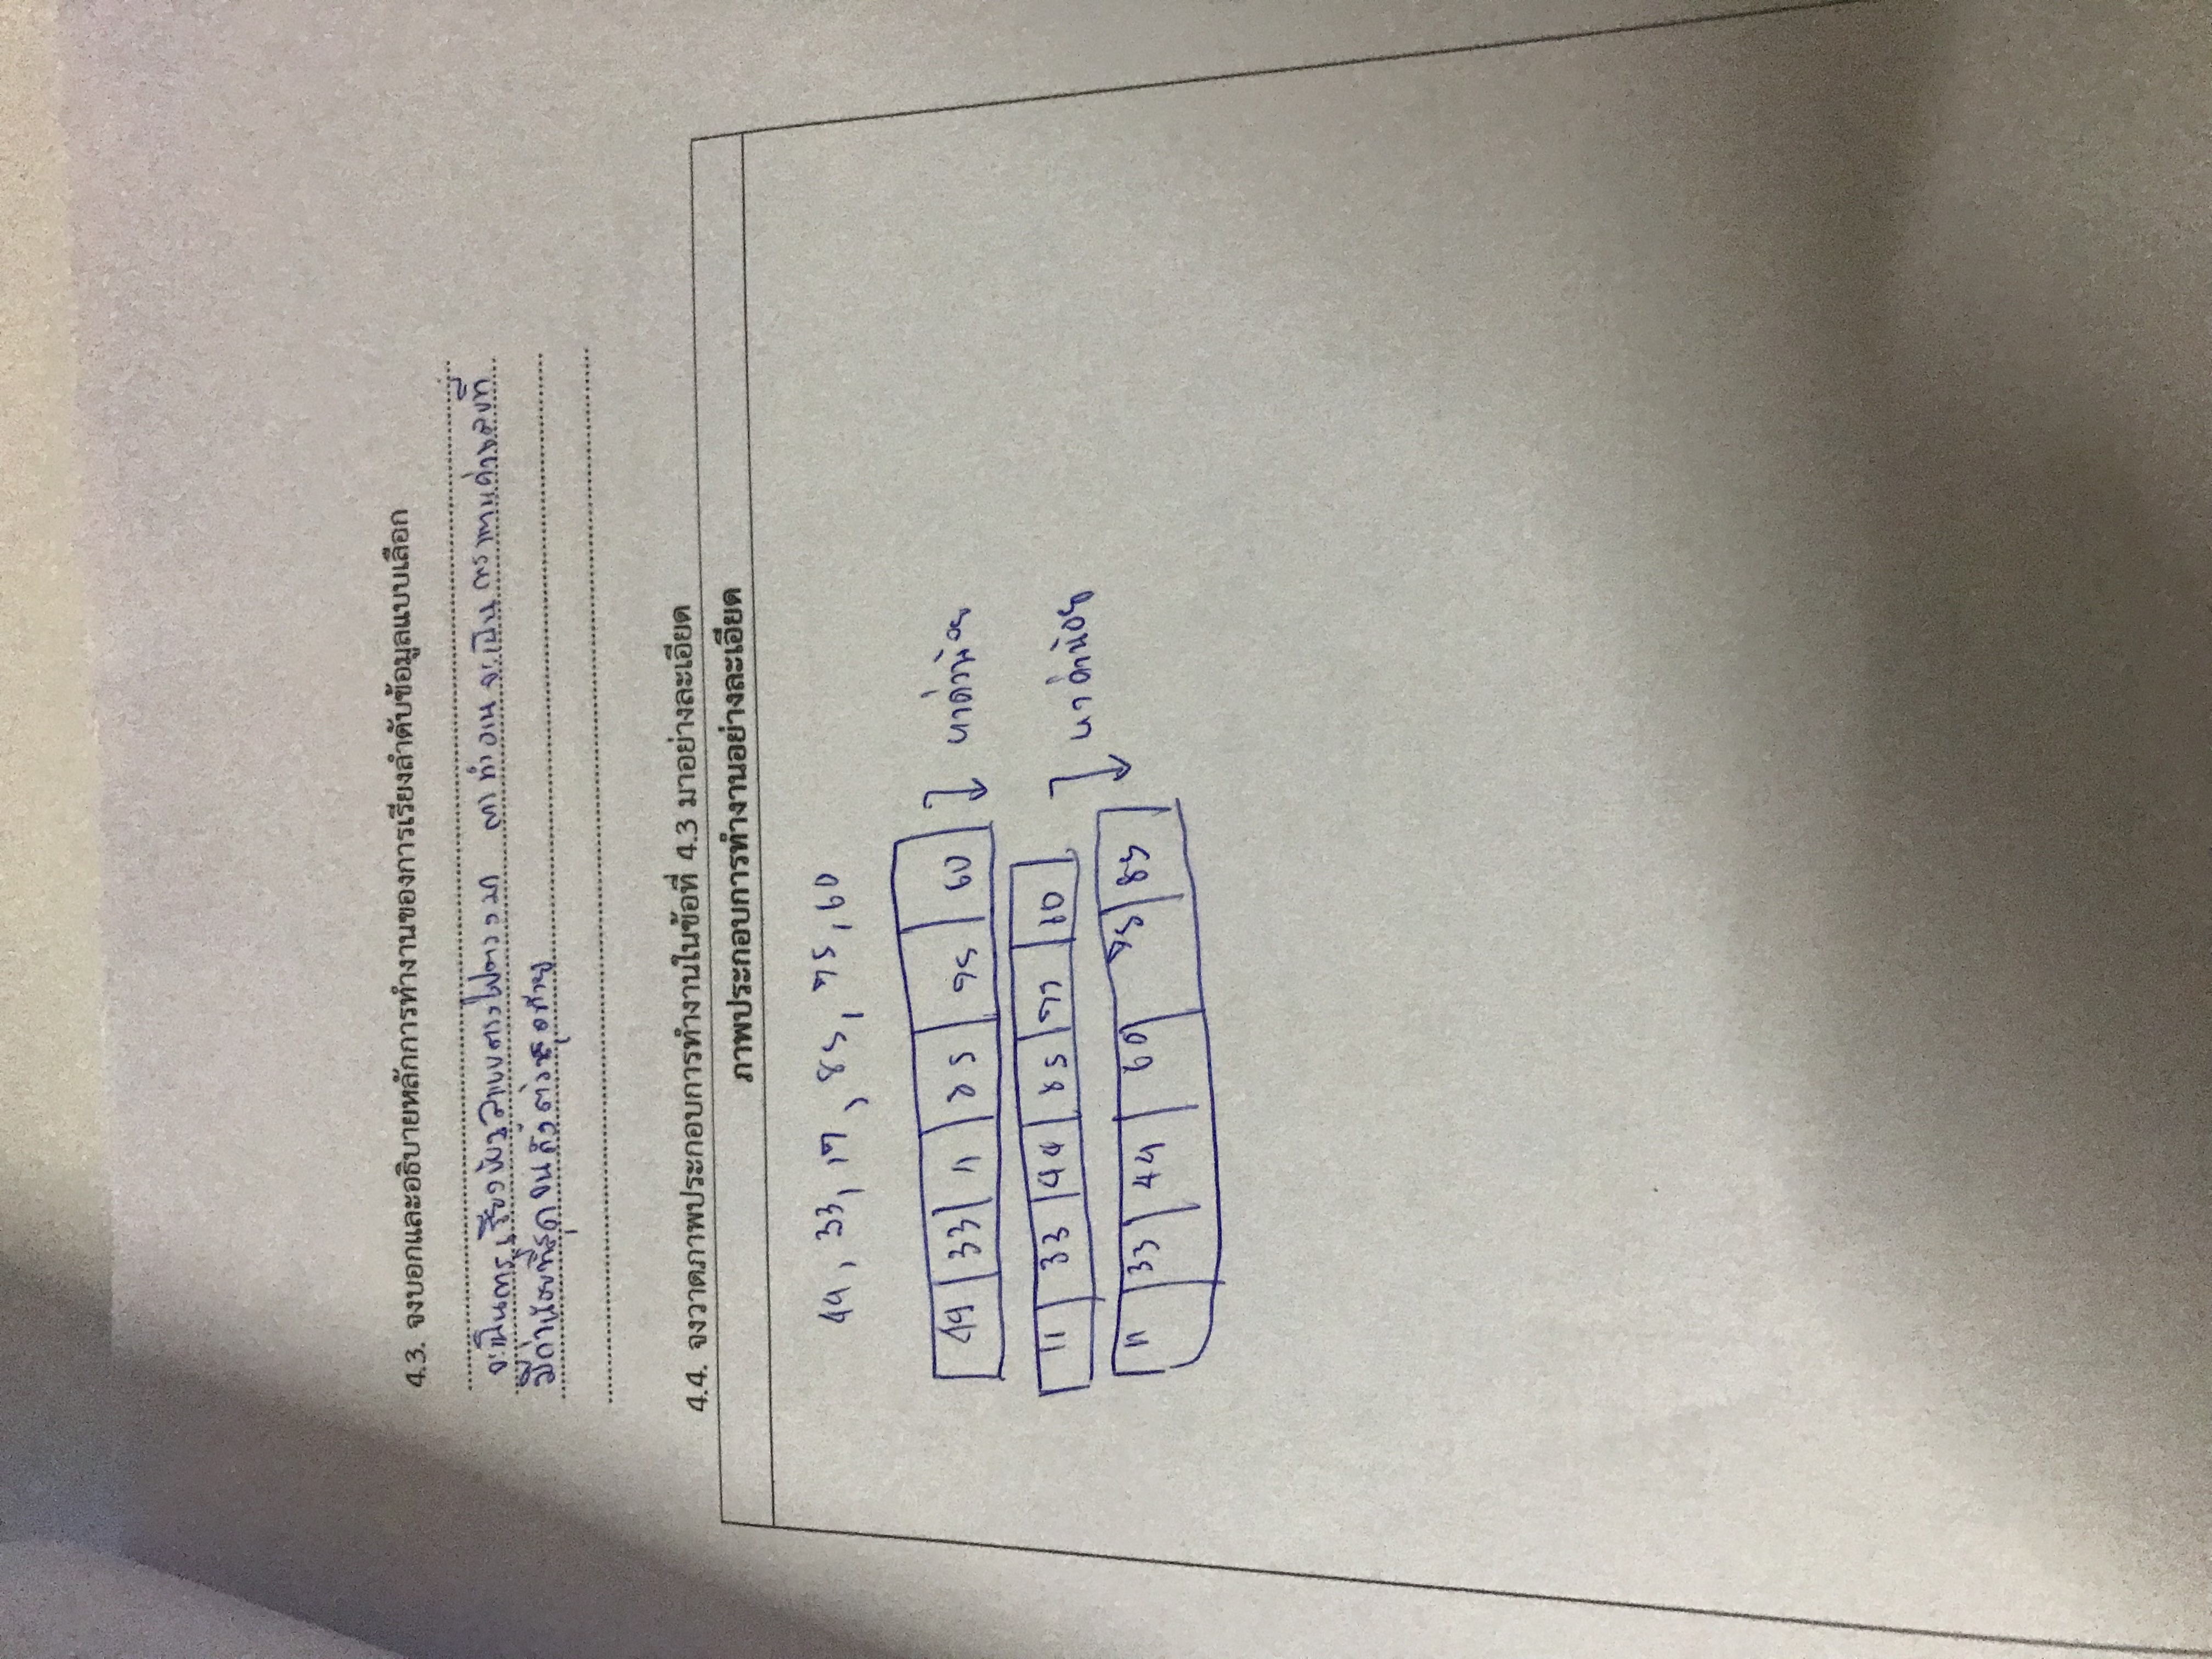 4.3. จงบอกและอธิบายหลักการทำงานของการเรียงลำดับข้อมูลแบบเลือก
จะเป็นการเรียงข้อมูลแบบตรงไปตรงมา การทำงานจะเป็นการหาค่าของที่
มีค่าน้อยที่สุดจนถึงตัวสุดท้าย
4.4. จงวาดภาพประกอบการทำงานในข้อที่ 4.3 มาอย่างละเอียด
ภาพประกอบการทำงานอย่างละเอียด
44, 33, 11, 85, 75, 60
44 33 11 85 75 60 หาค่าน้อย
11 33 44 85 75 60
หาค่าน้อย
11 33 44 60 75 85